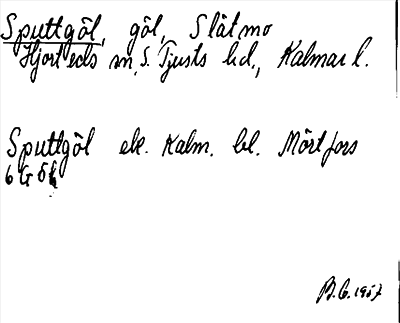 Sputtgöl, göl, Slätmo
Hjorteds sn, S. Tjusts hd., Kalmar l.
Sputtgöl ek. Kalm. bl. Mörtfors
6 G ö
B.G. 1957